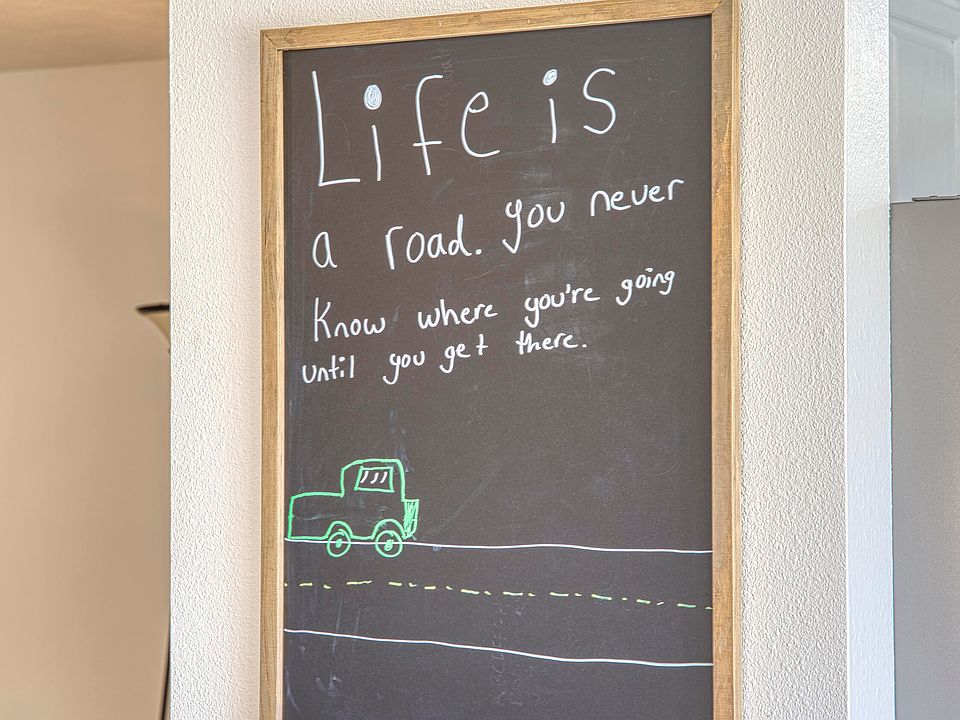 Life is
a road. You never
Know where you're going
until you get there.